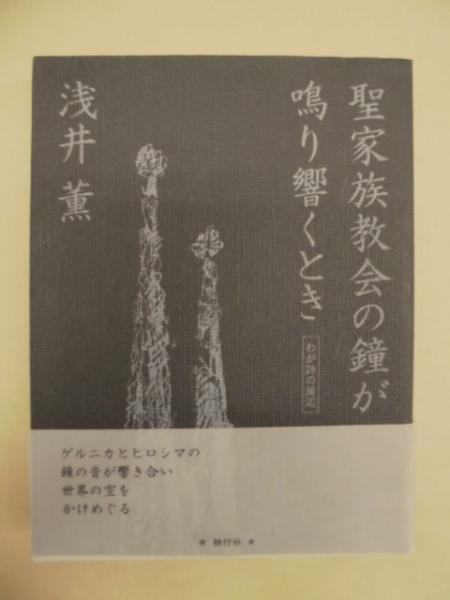 聖家族教会の鐘が
鳴り響くとき
わが詩の周辺
浅井 薫
ゲルニカとヒロシマの
鐘の音が響き合い
世界の空を
かけめぐる
＊ 独行社 ＊